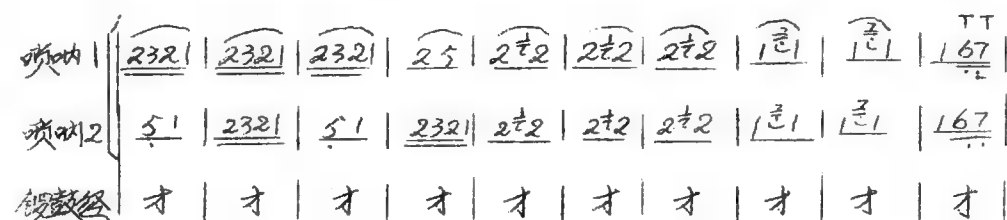 唢呐1 2321 | 2321 | 2321 | 25 | 2 2 | 2 2 | 2 2 | 1 1 | 1 1 | 167 |
唢呐2 51 | 2321 | 51 | 2321 | 2 2 | 2 2 | 2 2 | 1 1 | 1 1 | 167 |
锣鼓经 才 | 才 | 才 | 才 | 才 | 才 | 才 | 才 | 才 | 才